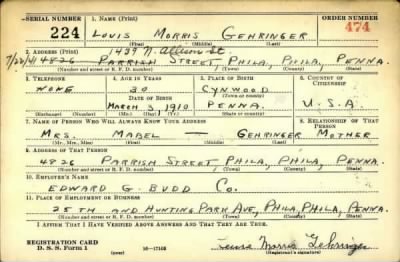 SERIAL NUMBER 1. NAME (Print) ORDER NUMBER
224 LOUIS MORRIS GEHRINGER 474
(First) (Middle) (Last)
1439 N. Allison St.
2. ADDRESS (Print)
7/22/41 4826 PARRISH STREET, PHILA, PHILA, PENNA.
(Number and street or R. F. D. number) (Town) (County) (State)
3. TELEPHONE 4. AGE IN YEARS 5. PLACE OF BIRTH 6. COUNTRY OF CITIZENSHIP
NONE 30 CYNWOOD
DATE OF BIRTH (Town or county)
MARCH 3, 1910 PENNA. U.S.A.
(Mo.) (Day) (Yr.) (State or country)
7. NAME OF PERSON WHO WILL ALWAYS KNOW YOUR ADDRESS 8. RELATIONSHIP OF THAT PERSON
MRS. MABEL — GEHRINGER MOTHER
(Mr., Mrs., Miss) (First) (Middle) (Last)
9. ADDRESS OF THAT PERSON
4826 PARRISH STREET, PHILA, PHILA, PENNA.
(Number and street or R. F. D. number) (Town) (County) (State)
10. EMPLOYER'S NAME
EDWARD G. BUDD Co.
11. PLACE OF EMPLOYMENT OR BUSINESS
25TH AND HUNTING PARK AVE, PHILA, PHILA, PENNA.
(Number and street or R. F. D. number) (Town) (County) (State)
I AFFIRM THAT I HAVE VERIFIED ABOVE ANSWERS AND THAT THEY ARE TRUE.
REGISTRATION CARD
D. S. S. Form 1 (over) 16—17105 Louis Morris Gehringer
(Registrant's signature)